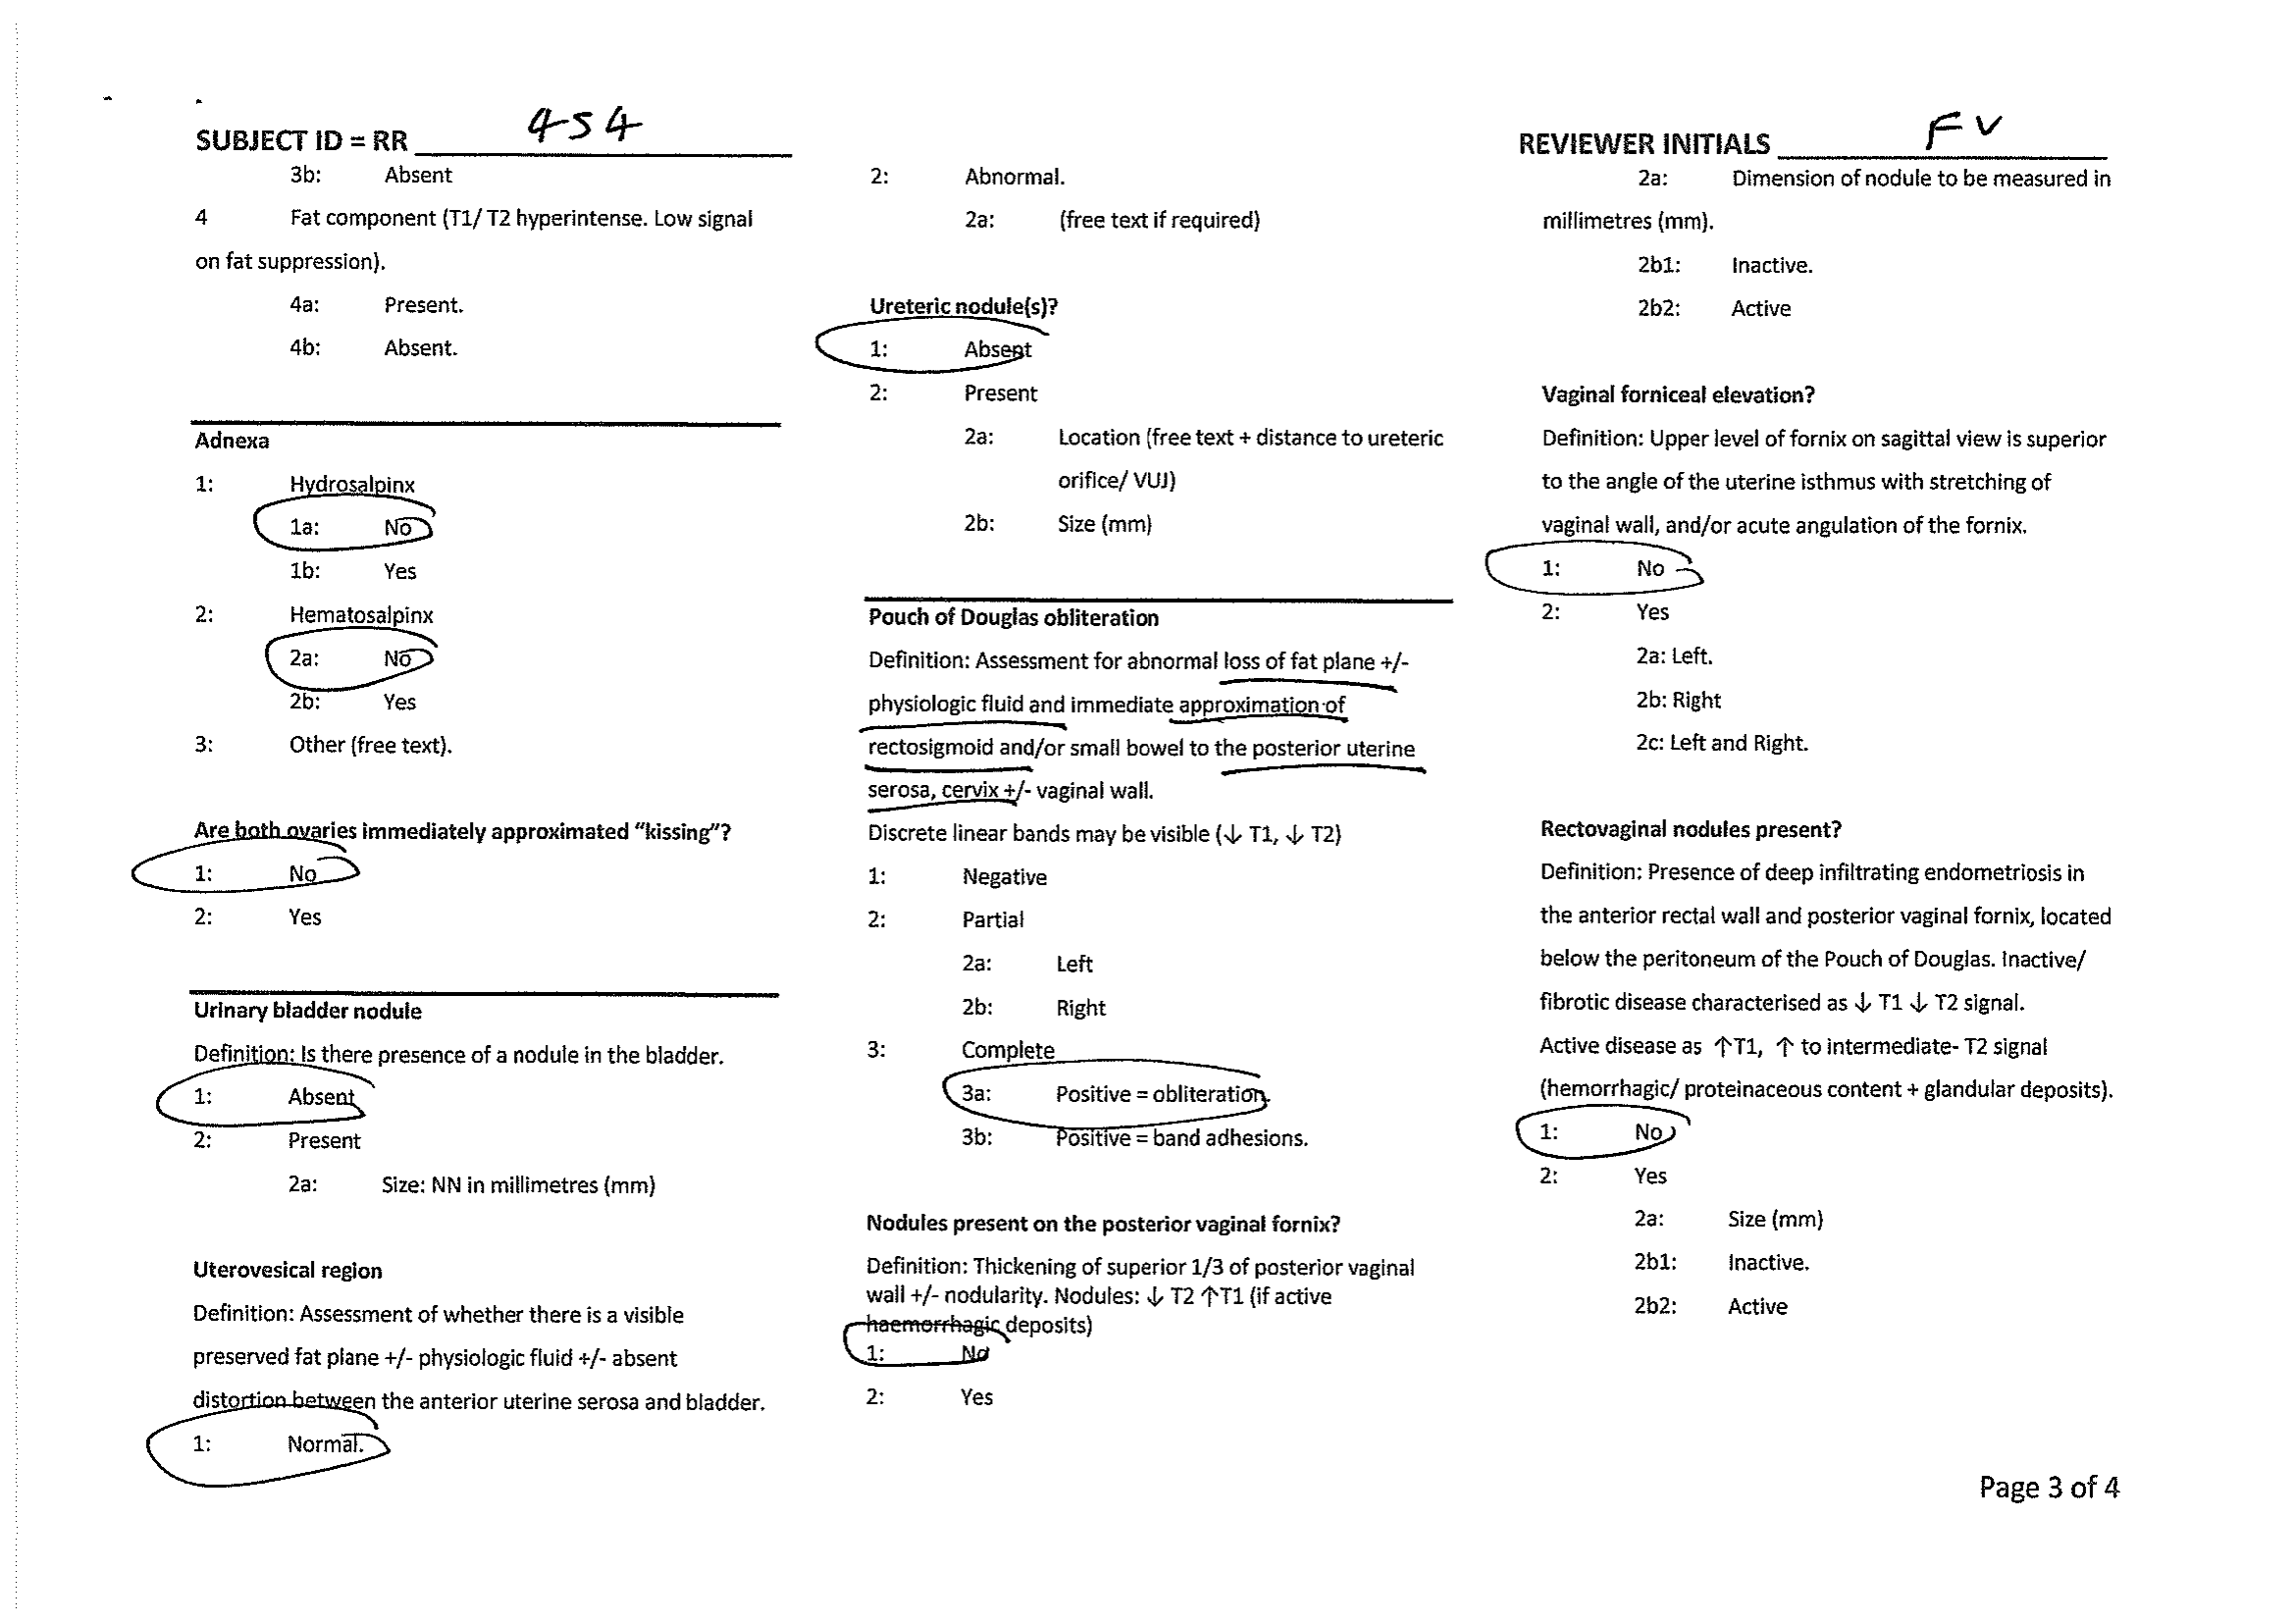 SUBJECT ID = RR 454
3b: Absent
4 Fat component (T1/ T2 hyperintense. Low signal
on fat suppression).
4a: Present.
4b: Absent.
Adnexa
1: Hydrosalpinx
1a: No
1b: Yes
2: Hematosalpinx
2a: No
2b: Yes
3: Other (free text).
Are both ovaries immediately approximated “kissing”?
1: No
2: Yes
Urinary bladder nodule
Definition: Is there presence of a nodule in the bladder.
1: Absent
2: Present
2a: Size: NN in millimetres (mm)
Uterovesical region
Definition: Assessment of whether there is a visible
preserved fat plane +/- physiologic fluid +/- absent
distortion between the anterior uterine serosa and bladder.
1: Normal.
2: Abnormal.
2a: (free text if required)
Ureteric nodule(s)?
1: Absent
2: Present
2a: Location (free text + distance to ureteric
orifice/ VUJ)
2b: Size (mm)
Pouch of Douglas obliteration
Definition: Assessment for abnormal loss of fat plane +/-
physiologic fluid and immediate approximation of
rectosigmoid and/or small bowel to the posterior uterine
serosa, cervix +/- vaginal wall.
Discrete linear bands may be visible (↓ T1, ↓ T2)
1: Negative
2: Partial
2a: Left
2b: Right
3: Complete
3a: Positive = obliteration.
3b: Positive = band adhesions.
Nodules present on the posterior vaginal fornix?
Definition: Thickening of superior 1/3 of posterior vaginal
wall +/- nodularity. Nodules: ↓ T2 ↑T1 (if active
haemorrhagic deposits)
1: No
2: Yes
REVIEWER INITIALS FV
2a: Dimension of nodule to be measured in
millimetres (mm).
2b1: Inactive.
2b2: Active
Vaginal forniceal elevation?
Definition: Upper level of fornix on sagittal view is superior
to the angle of the uterine isthmus with stretching of
vaginal wall, and/or acute angulation of the fornix.
1: No
2: Yes
2a: Left.
2b: Right
2c: Left and Right.
Rectovaginal nodules present?
Definition: Presence of deep infiltrating endometriosis in
the anterior rectal wall and posterior vaginal fornix, located
below the peritoneum of the Pouch of Douglas. Inactive/
fibrotic disease characterised as ↓ T1 ↓ T2 signal.
Active disease as ↑T1, ↑ to intermediate- T2 signal
(hemorrhagic/ proteinaceous content + glandular deposits).
1: No
2: Yes
2a: Size (mm)
2b1: Inactive.
2b2: Active
Page 3 of 4